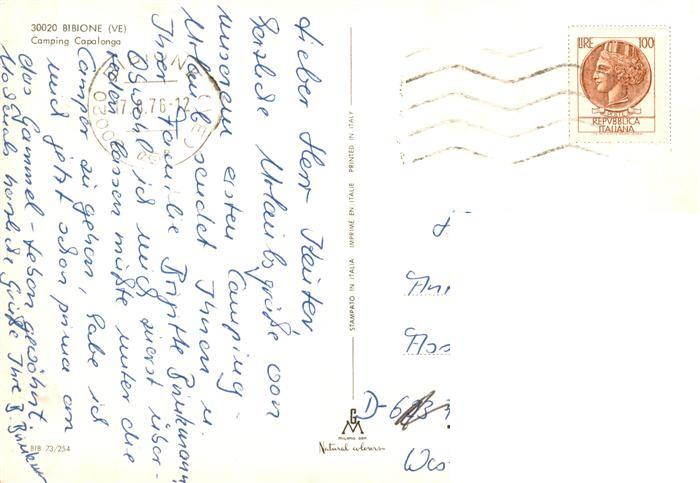 30020 BIBIONE (VE)
Camping Capalonga
17.8.76-12
LIRE 100
POSTE
REPVBBLICA
ITALIANA
Lieber Herr Reiter
herzliche Urlaubsgrüße von
unserem ersten Camping-
Urlaub sendet Ihnen u.
Ihrer Familie Brigitte Brinkmann
Obwohl ich mich zuerst über-
reden lassen mußte unter die
Camper zu gehen, habe ich
mich jetzt schon prima an
das Gammel-Leben gewöhnt.
Nochmals herzliche Grüße Ihre B.
STAMPATO IN ITALIA IMPRIMÉ EN ITALIE PRINTED IN ITALY
D-6
Wes
BIB 73/254
GM
MILANO
Natural colours